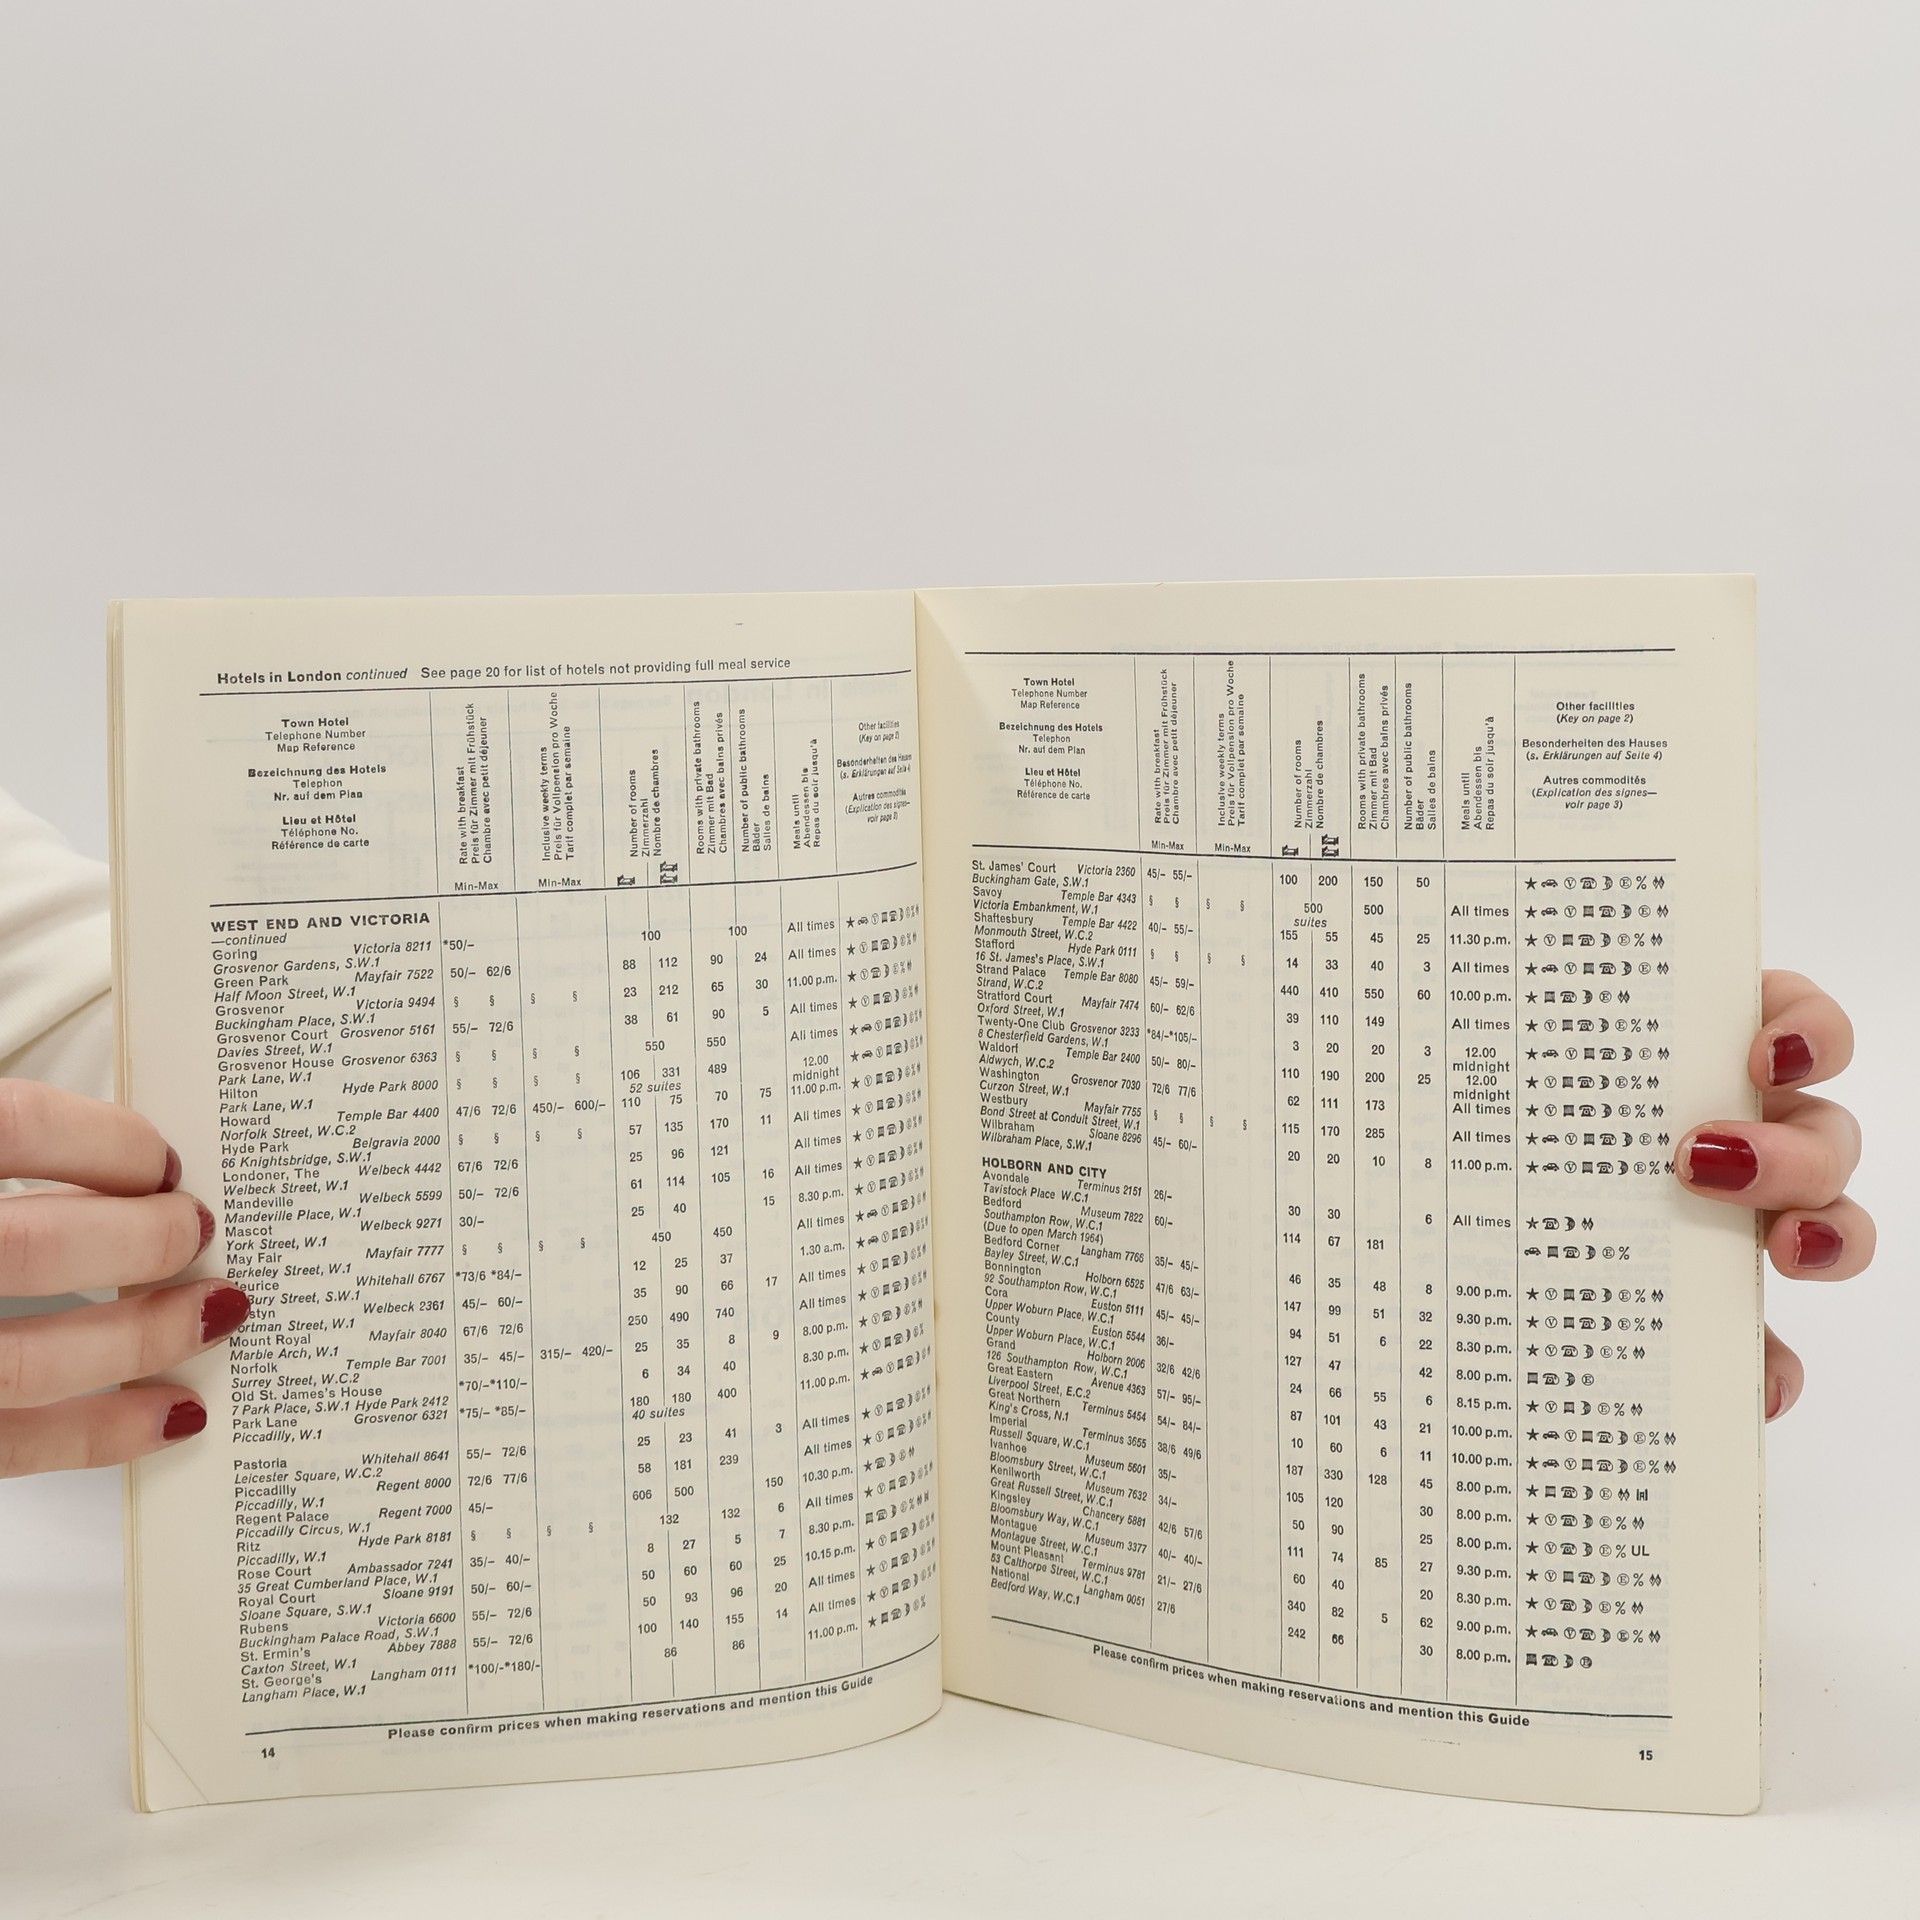 Hotels in London continued See page 20 for list of hotels not providing full meal service
Town Hotel
Telephone Number
Map Reference
Bezeichnung des Hotels
Telephon
Nr. auf dem Plan
Lieu et Hôtel
Téléphone No.
Référence de carte
Rate with breakfast
Preis für Zimmer mit Frühstück
Chambre avec petit déjeuner
Min-Max
Inclusive weekly terms
Preis für Vollpension pro Woche
Tarif complet par semaine
Min-Max
Number of rooms
Zimmerzahl
Nombre de chambres
Rooms with private bathrooms
Zimmer mit Bad
Chambres avec bains privés
Number of public bathrooms
Bäder
Salles de bains
Meals until
Abendessen bis
Repas du soir jusqu'à
Other facilities
(Key on page 2)
Besonderheiten des Hauses
(s. Erklärungen auf Seite 4)
Autres commodités
(Explication des signes—
voir page 3)
WEST END AND VICTORIA
—continued
Goring Victoria 8211 *50/- 100 100 All times
Grosvenor Gardens, S.W.1
Green Park Mayfair 7522 50/- 62/6 88 112 90 24 All times
Half Moon Street, W.1
Grosvenor Victoria 9494 § § § § 23 212 65 30 11.00 p.m.
Buckingham Place, S.W.1
Grosvenor Court Grosvenor 5161 55/- 72/6 38 61 90 5 All times
Davies Street, W.1
Grosvenor House Grosvenor 6363 § § § § 550 550 All times
Park Lane, W.1
Hilton Hyde Park 8000 § § § § 106 331 489 12.00
Park Lane, W.1 52 suites midnight
Howard Temple Bar 4400 47/6 72/6 450/- 600/- 110 75 70 75 11.00 p.m.
Norfolk Street, W.C.2
Hyde Park Belgravia 2000 § § § § 57 135 170 11 All times
66 Knightsbridge, S.W.1
Londoner, The Welbeck 4442 67/6 72/6 25 96 121 All times
Welbeck Street, W.1
Mandeville Welbeck 5599 50/- 72/6 61 114 105 16 All times
Mandeville Place, W.1
Mascot Welbeck 9271 30/- 25 40 15 8.30 p.m.
York Street, W.1
May Fair Mayfair 7777 § § § § 450 450 All times
Berkeley Street, W.1
eurice Whitehall 6767 *73/6 *84/- 12 25 37 1.30 a.m.
Bury Street, S.W.1
styn Welbeck 2361 45/- 60/- 35 90 66 17 All times
ortman Street, W.1
Mount Royal Mayfair 8040 67/6 72/6 250 490 740 All times
Marble Arch, W.1
Norfolk Temple Bar 7001 35/- 45/- 315/- 420/- 25 35 8 9 8.00 p.m.
Surrey Street, W.C.2
Old St. James's House *70/-*110/- 6 34 40 8.30 p.m.
7 Park Place, S.W.1 Hyde Park 2412
Park Lane Grosvenor 6321 *75/- *85/- 180 180 400 11.00 p.m.
Piccadilly, W.1 40 suites
Pastoria Whitehall 8641 55/- 72/6 25 23 41 3 All times
Leicester Square, W.C.2
Piccadilly Regent 8000 72/6 77/6 58 181 239 All times
Piccadilly, W.1
Regent Palace Regent 7000 45/- 606 500 150 10.30 p.m.
Piccadilly Circus, W.1
Ritz Hyde Park 8181 § § § § 132 132 6 All times
Piccadilly, W.1
Rose Court Ambassador 7241 35/- 40/- 8 27 5 7 8.30 p.m.
35 Great Cumberland Place, W.1
Royal Court Sloane 9191 50/- 60/- 50 60 60 25 10.15 p.m.
Sloane Square, S.W.1
Rubens Victoria 6600 55/- 72/6 50 93 96 20 All times
Buckingham Palace Road, S.W.1
St. Ermin's Abbey 7888 55/- 72/6 100 140 155 14 All times
Caxton Street, W.1
St. George's Langham 0111 *100/-*180/- 86 86 11.00 p.m.
Langham Place, W.1
Please confirm prices when making reservations and mention this Guide
14
Town Hotel
Telephone Number
Map Reference
Bezeichnung des Hotels
Telephon
Nr. auf dem Plan
Lieu et Hôtel
Téléphone No.
Référence de carte
Rate with breakfast
Preis für Zimmer mit Frühstück
Chambre avec petit déjeuner
Min-Max
Inclusive weekly terms
Preis für Vollpension pro Woche
Tarif complet par semaine
Min-Max
Number of rooms
Zimmerzahl
Nombre de chambres
Rooms with private bathrooms
Zimmer mit Bad
Chambres avec bains privés
Number of public bathrooms
Bäder
Salles de bains
Meals until
Abendessen bis
Repas du soir jusqu'à
Other facilities
(Key on page 2)
Besonderheiten des Hauses
(s. Erklärungen auf Seite 4)
Autres commodités
(Explication des signes—
voir page 3)
St. James' Court Victoria 2360 45/- 55/- 100 200 150 50
Buckingham Gate, S.W.1
Savoy Temple Bar 4343 § § § § 500 500 All times
Victoria Embankment, W.1 suites
Shaftesbury Temple Bar 4422 40/- 55/- 155 55 45 25 11.30 p.m.
Monmouth Street, W.C.2
Stafford Hyde Park 0111 § § § § 14 33 40 3 All times
16 St. James's Place, S.W.1
Strand Palace Temple Bar 8080 45/- 59/- 440 410 550 60 10.00 p.m.
Strand, W.C.2
Stratford Court Mayfair 7474 60/- 62/6 39 110 149 All times
Oxford Street, W.1
Twenty-One Club Grosvenor 3233 *84/-*105/- 3 20 20 3 12.00
8 Chesterfield Gardens, W.1 midnight
Waldorf Temple Bar 2400 50/- 80/- 110 190 200 25 12.00
Aldwych, W.C.2 midnight
Washington Grosvenor 7030 72/6 77/6 62 111 173 All times
Curzon Street, W.1
Westbury Mayfair 7755 § § § § 115 170 285 All times
Bond Street at Conduit Street, W.1
Wilbraham Sloane 8296 45/- 60/- 20 20 10 8 11.00 p.m.
Wilbraham Place, S.W.1
HOLBORN AND CITY
Avondale Terminus 2151 26/- 30 30 6 All times
Tavistock Place W.C.1
Bedford Museum 7822 60/- 114 67 181
Southampton Row, W.C.1
(Due to open March 1964)
Bedford Corner Langham 7766 35/- 45/- 46 35 48 8 9.00 p.m.
Bayley Street, W.C.1
Bonnington Holborn 6525 47/6 63/- 147 99 51 32 9.30 p.m.
92 Southampton Row, W.C.1
Cora Euston 5111 45/- 45/- 94 51 6 22 8.30 p.m.
Upper Woburn Place, W.C.1
County Euston 5544 36/- 127 47 42 8.00 p.m.
Upper Woburn Place, W.C.1
Grand Holborn 2006 32/6 42/6 24 66 55 6 8.15 p.m.
126 Southampton Row, W.C.1
Great Eastern Avenue 4363 57/- 95/- 87 101 43 21 10.00 p.m.
Liverpool Street, E.C.2
Great Northern Terminus 5454 54/- 84/- 10 60 6 11 10.00 p.m.
King's Cross, N.1
Imperial Terminus 3655 38/6 49/6 187 330 128 45 8.00 p.m.
Russell Square, W.C.1
Ivanhoe Museum 5601 35/- 105 120 30 8.00 p.m.
Bloomsbury Street, W.C.1
Kenilworth Museum 7632 34/- 50 90 25 8.00 p.m. UL
Great Russell Street, W.C.1
Kingsley Chancery 5881 42/6 57/6 111 74 85 27 9.30 p.m.
Bloomsbury Way, W.C.1
Montague Museum 3377 40/- 40/- 60 40 20 8.30 p.m.
Montague Street, W.C.1
Mount Pleasant Terminus 9781 21/- 27/6 340 82 5 62 9.00 p.m.
53 Calthorpe Street, W.C.1
National Langham 0051 27/6 242 66 30 8.00 p.m.
Bedford Way, W.C.1
Please confirm prices when making reservations and mention this Guide
15